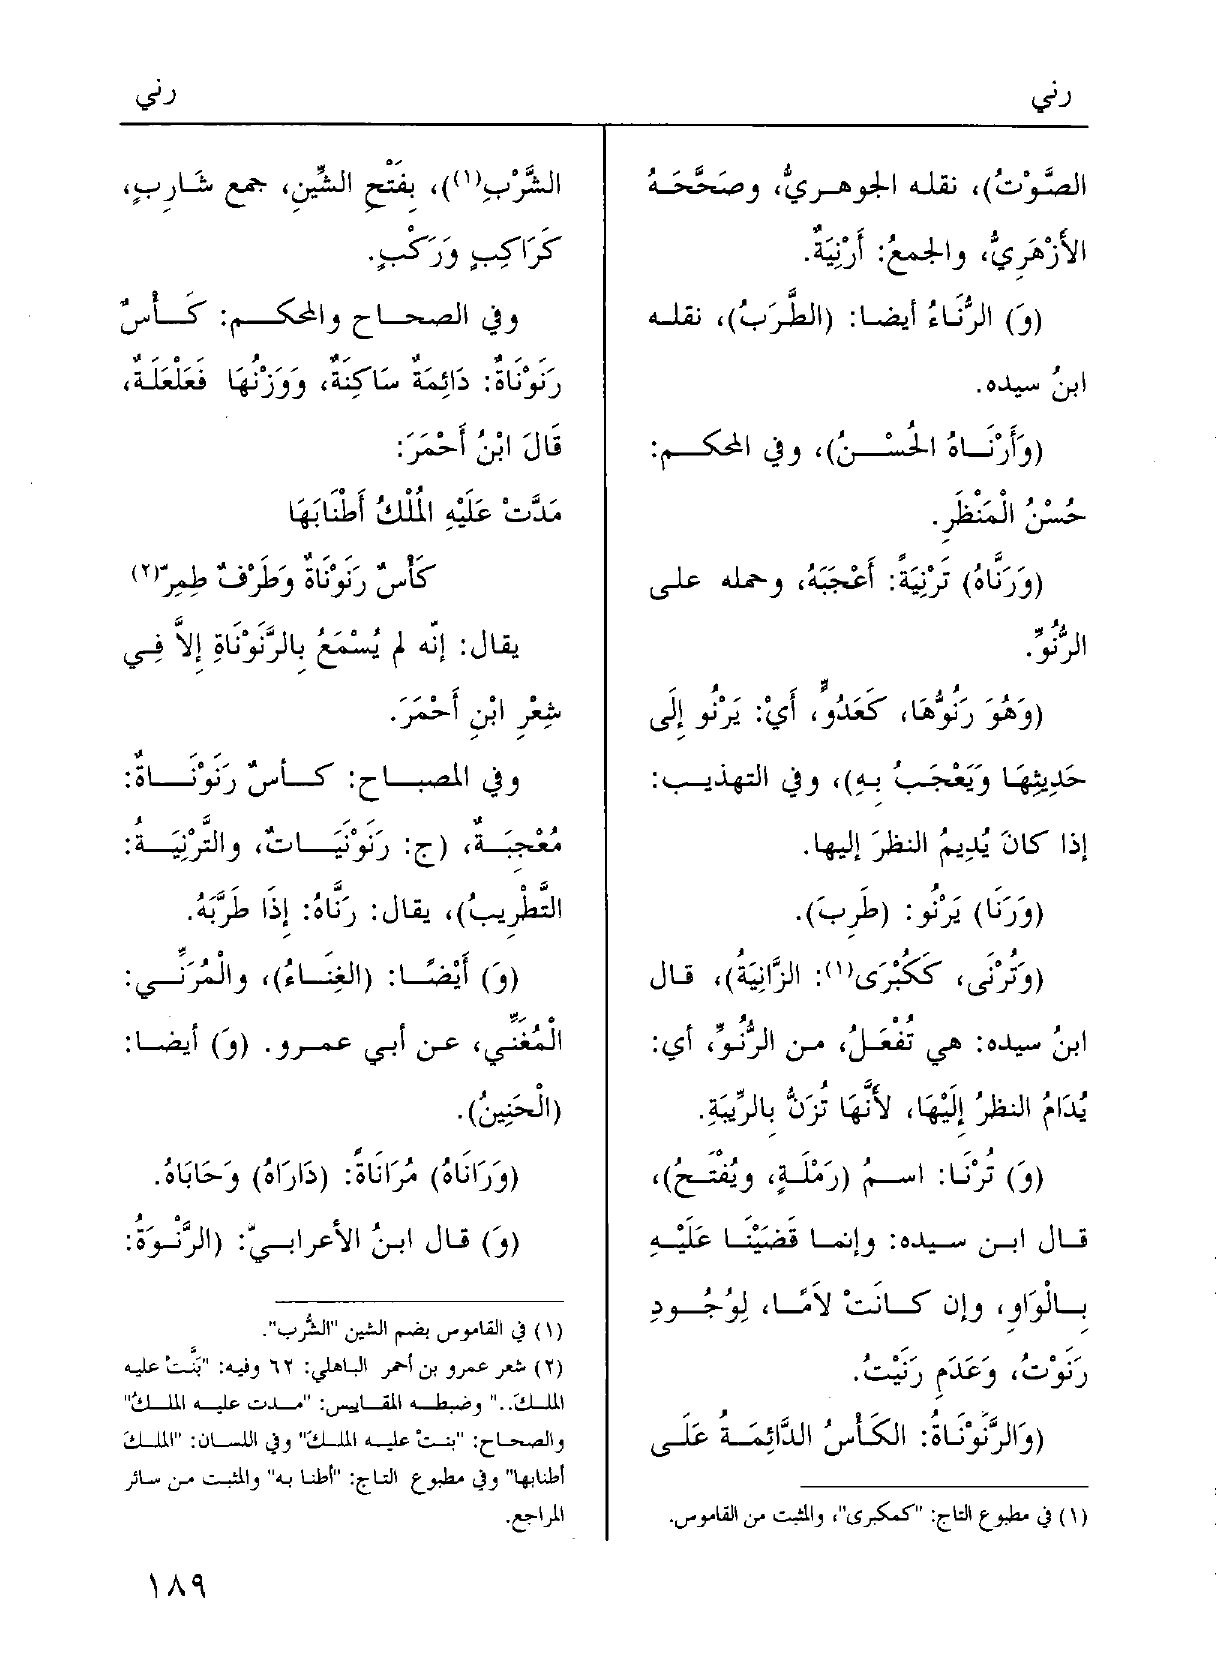 رني
رني
الصَّوْتُ)، نقله الجوهريُّ، وصَحَّحَهُ
الأَزْهَرِيُّ، والجمعُ: أَرْنِيَةٌ.
(وَ) الرُّنَاءُ أيضا: (الطَّرَبُ)، نقله
ابنُ سيده.
(وَأَرْنَاهُ الحُسْنُ)، وفي المحكم:
حُسْنُ الْمَنْظَرِ.
(وَرَنَّاهُ) تَرْنِيَةً: أَعْجَبَهُ، وحمله على
الرُّنُوِّ.
(وَهُوَ رَنُوُّهَا، كَعَدُوٍّ، أَيْ: يَرْنُو إِلَى
حَدِيثِهَا وَيَعْجَبُ بِهِ)، وفي التهذيب:
إذا كانَ يُدِيمُ النظرَ إليها.
(وَرَنَا) يَرْنُو: (طَرِبَ).
(وَتُرْنَى، كَكُبْرَى(١): الزَّانِيَةُ)، قال
ابنُ سيده: هي تُفْعَلُ، من الرُّنُوِّ، أي:
يُدَامُ النظرُ إِلَيْهَا، لأَنَّهَا تُزَنُّ بِالرِّيبَةِ.
(وَ) تُرْنَا: اسمُ (رَمْلَةٍ، ويُفْتَحُ)،
قال ابن سيده: وإنما قَضَيْنَا عَلَيْهِ
بِالْوَاوِ، وإن كَانَتْ لاَمًا، لِوُجُودِ
رَنَوْتُ، وَعَدَمِ رَنَيْتُ.
(وَالرَّنَوْنَاةُ: الكَأْسُ الدَّائِمَةُ عَلَى
(١) في مطبوع التاج: "كمكبرى"، والمثبت من القاموس.
الشَّرْبِ(١))، بِفَتْحِ الشِّينِ، جمع شَارِبٍ،
كَرَاكِبٍ وَرَكْبٍ.
وفي الصحاح والمحكم: كَأْسٌ
رَنَوْنَاةٌ: دَائِمَةٌ سَاكِنَةٌ، وَوَزْنُهَا فَعَلْعَلَة،
قَالَ ابْنُ أَحْمَرَ:
مَدَّتْ عَلَيْهِ الْمُلْكُ أَطْنَابَهَا
كَأْسٌ رَنَوْنَاةٌ وَطَرْفٌ طِمِرّ(٢)
يقال: إنّه لم يُسْمَعُ بِالرَّنَوْنَاةِ إلاَّ فِي
شِعْرِ ابْنِ أَحْمَرَ.
وفي المصباح: كأسٌ رَنَوْنَاةٌ:
مُعْجِبَةٌ، (ج: رَنَوْنَيَاتٌ، والتَّرْنِيَةُ:
التَّطْرِيبُ)، يقال: رَنَّاهُ: إِذَا طَرَّبَهُ.
(وَ) أَيْضًا: (الغِنَاءُ)، والْمُرَنِّي:
الْمُغَنِّي، عن أبي عمرو. (وَ) أيضا:
(الْحَنِينُ).
(وَرَانَاهُ) مُرَانَاةً: (دَارَاهُ) وَحَابَاهُ.
(وَ) قال ابنُ الأعرابيّ: (الرَّنْوَةُ:
(١) في القاموس بضم الشين "الشُّرب".
(٢) شعر عمرو بن أحمر الباهلي: ٦٢ وفيه: "بَنَّتْ عليه
الملكَ.." وضبطه المقاييس: "مدت عليه الملكُ"
والصحاح: "بنتْ عليه الملكَ" وفي اللسان: "الملكَ
أطنابها" وفي مطبوع التاج: "أطنا به" والمثبت من سائر
المراجع.
١٨٩